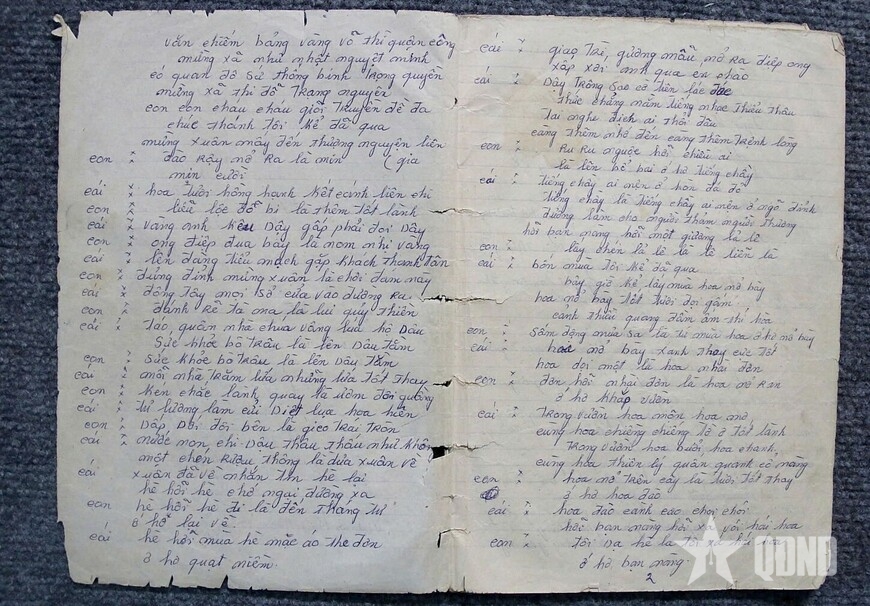 văn chiếm bảng vàng võ thì quận công
mừng xã như nhật nguyệt minh
có quan đô sứ thống binh trọng quyền
mừng xã thi đỗ trang nguyên
con con cháu cháu giỗi truyền để đa
chúc thánh tôi kể đã qua
mừng xuân mấy đến thượng nguyên liên
con : đào rây mở ra là min (gia
min cười
cái : hoa tươi hồng hạnh kết cánh liên chi
con : liễu lộc đỗ bi là thêm tốt lành
cái : vàng anh kêu dây gấp phải đợi dây
con : ong điệp đua bay là nom nhị vàng
cái : lên đàng tiểu mạch gặp khách thanh tân
con : đủng đỉnh mừng xuân là chơi đam mây
cái : đông tây mọi sở cửa vào đường ra
con : đánh rẽ tà ma là lui quy thiên
cái : tạo, quân nhà chua vàng lụa hồ dâu
Sức khỏe bò trâu là lên dâu tằm
con : sức khỏe bò trâu là lên dây tằm
cái : mỗi nhà trăm lứa những lứa tốt thay
con : kén chắc lánh quay là ươm đôi guồng
cái : tư lường làm cửi diệt lụa hoa hiên
con : dập dìu đôi bên là gieo trai tròn
cái : nước non chi dậu thấu thấu như không
một chén rượu thông là đưa xuân về
cái xuân đã về nhắn tin hè lại
hè hỡi hè chờ ngại đường xa
con hè hỡi hè đi là đến tháng tư
ơ hờ lại về
cái hè hỡi mùa hè mặc áo the đơn
ơ hờ quạt niềm.
cái : giao trì, gương mẫu mở ra điệp ong
xấp xới anh qua en chào
cái : Dây trông sao có liên lạc đạc
thức chừng năm tiếng nhạc thiều thâu
Tai nghe địch ai thổi đâu
càng thêm nhớ đến càng thêm trệnh lòng
con : Ru Ru nguộc hỡi chiều ai
là lên bổ bải ơ hờ tiếng chầy
cái : Tiếng chầy ai nện ở hòn đá đó
tiếng chầy là tiếng chầy ai nện ở ngã đỉnh
đường làm cho người thăm người thương
hỡi bạn nàng hỡi một giường là lê
con : lấy chén là lê là lê liên là
cái : bốn mùa tôi kể đã qua
bây giờ kể lấy mùa hoa nở bây
hoa nở bây tốt tươi đợi gấm
cảnh thiều quang đầm ấm thi hoa
con : Sấm động mưa sa là tư mùa hoa ơ hờ nở bây
cái : hoa nở bây xanh thay cực tốt
hoa dọi một là hoa nhài đơn
con : đơn hỡi nhài đơn là hoa nở ran
ơ hờ khắp vườn
cái : Trong vườn hoa môn hoa mơ
cùng hoa chiêng chiêng tờ ở tốt lành
Trong vườn hoa bưởi hoa chanh
cùng hoa thiên lý quấn quanh cô nàng
con : hoa nở trên cây là tươi tốt thay
ơ hờ hoa đào
cái : hoa đào cánh cao chơi chới
hỡi bạn nàng hỡi với hái hoa
con : tôi
ơ hờ bạn nàng
2
QĐND